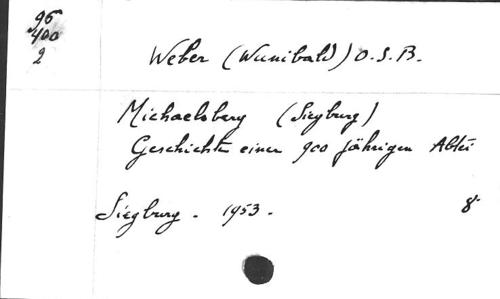 96
400
2
Weber (Wunibald) O.S.B.
Michaelsberg (Siegburg)
Geschichte einer 900 jährigen Abtei
Siegburg. 1953. 8°